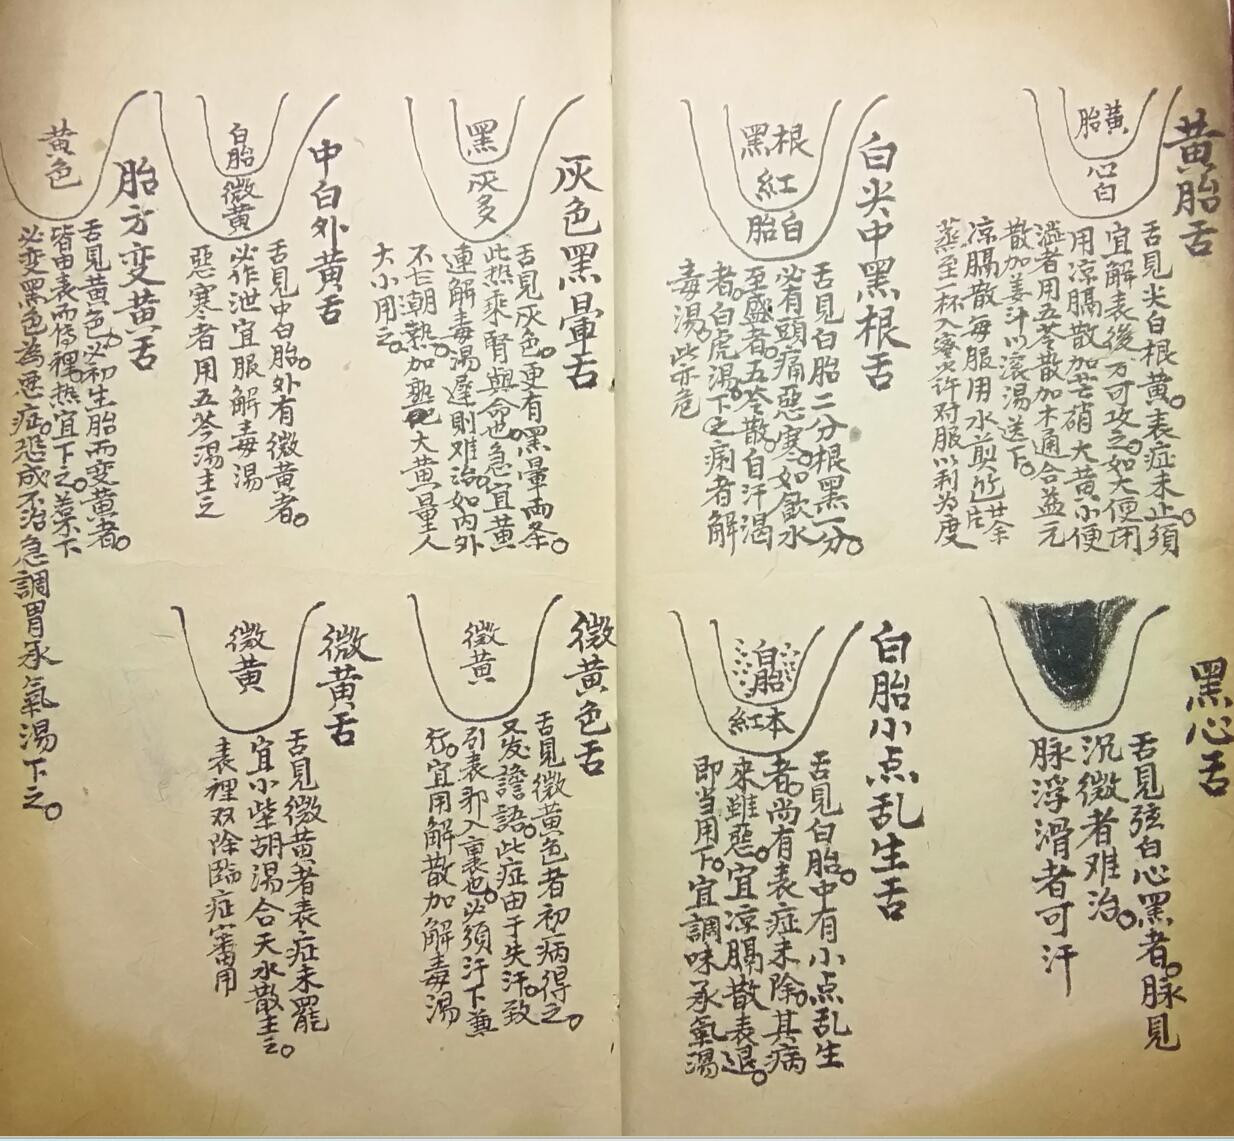 黄胎舌
黄胎
心白
舌見尖白根黄。表症未止。須
宜解表後方可攻之。如大便闭
用凉膈散加芒硝大黄小便
澁者用五苓散加木通合益元
散加姜汁以滚湯送下。
凉膈散每服用水煎
蒸至一杯入蜜少许对服以利为度
黑心舌
舌見弦白心黑者。脉見
沉微者难治。
脉浮滑者可汗
白尖中黑根舌
根黑
紅
白胎
舌見白胎二分根黑一分。
必有頭痛惡寒。如飲水
至盛者。五苓散。自汗渴
者。白虎湯。下之痢者解
毒湯。此亦危
白胎小点乱生舌
白胎
本紅
舌見白胎。中有小点乱生
者。尚有表症未除。其病
來雖惡。宜凉膈散表退。
即当用下。宜調味承氣湯
灰色黑暈舌
黑
灰多
舌見灰色。更有黑暈两条。
此热乘腎與命也。急宜黄
連解毒湯遲則难治如内外
不七潮热。加大黄量人
大小用之。
微黄色舌
微黄
舌見微黄色者初病得之。
又发譫語。此症由于失汗。致
引表邪入裏也。必须汗下兼
行。宜用解散加解毒湯
中白外黄舌
白胎
微黄
舌見中白胎。外有微黄者。
必作泄宜服解毒湯
惡寒者用五苓湯主之
微黄舌
微黄
舌見微黄者表症未罷
宜小柴胡湯合天水散主之。
表裡双除臨症審用
胎方变黄舌
黄色
舌見黄色。必初生胎而变黄者。
皆由表而传裡。热宜下之。若不下
必变黑色为恶症。恐成不治急調胃承氣湯下之。